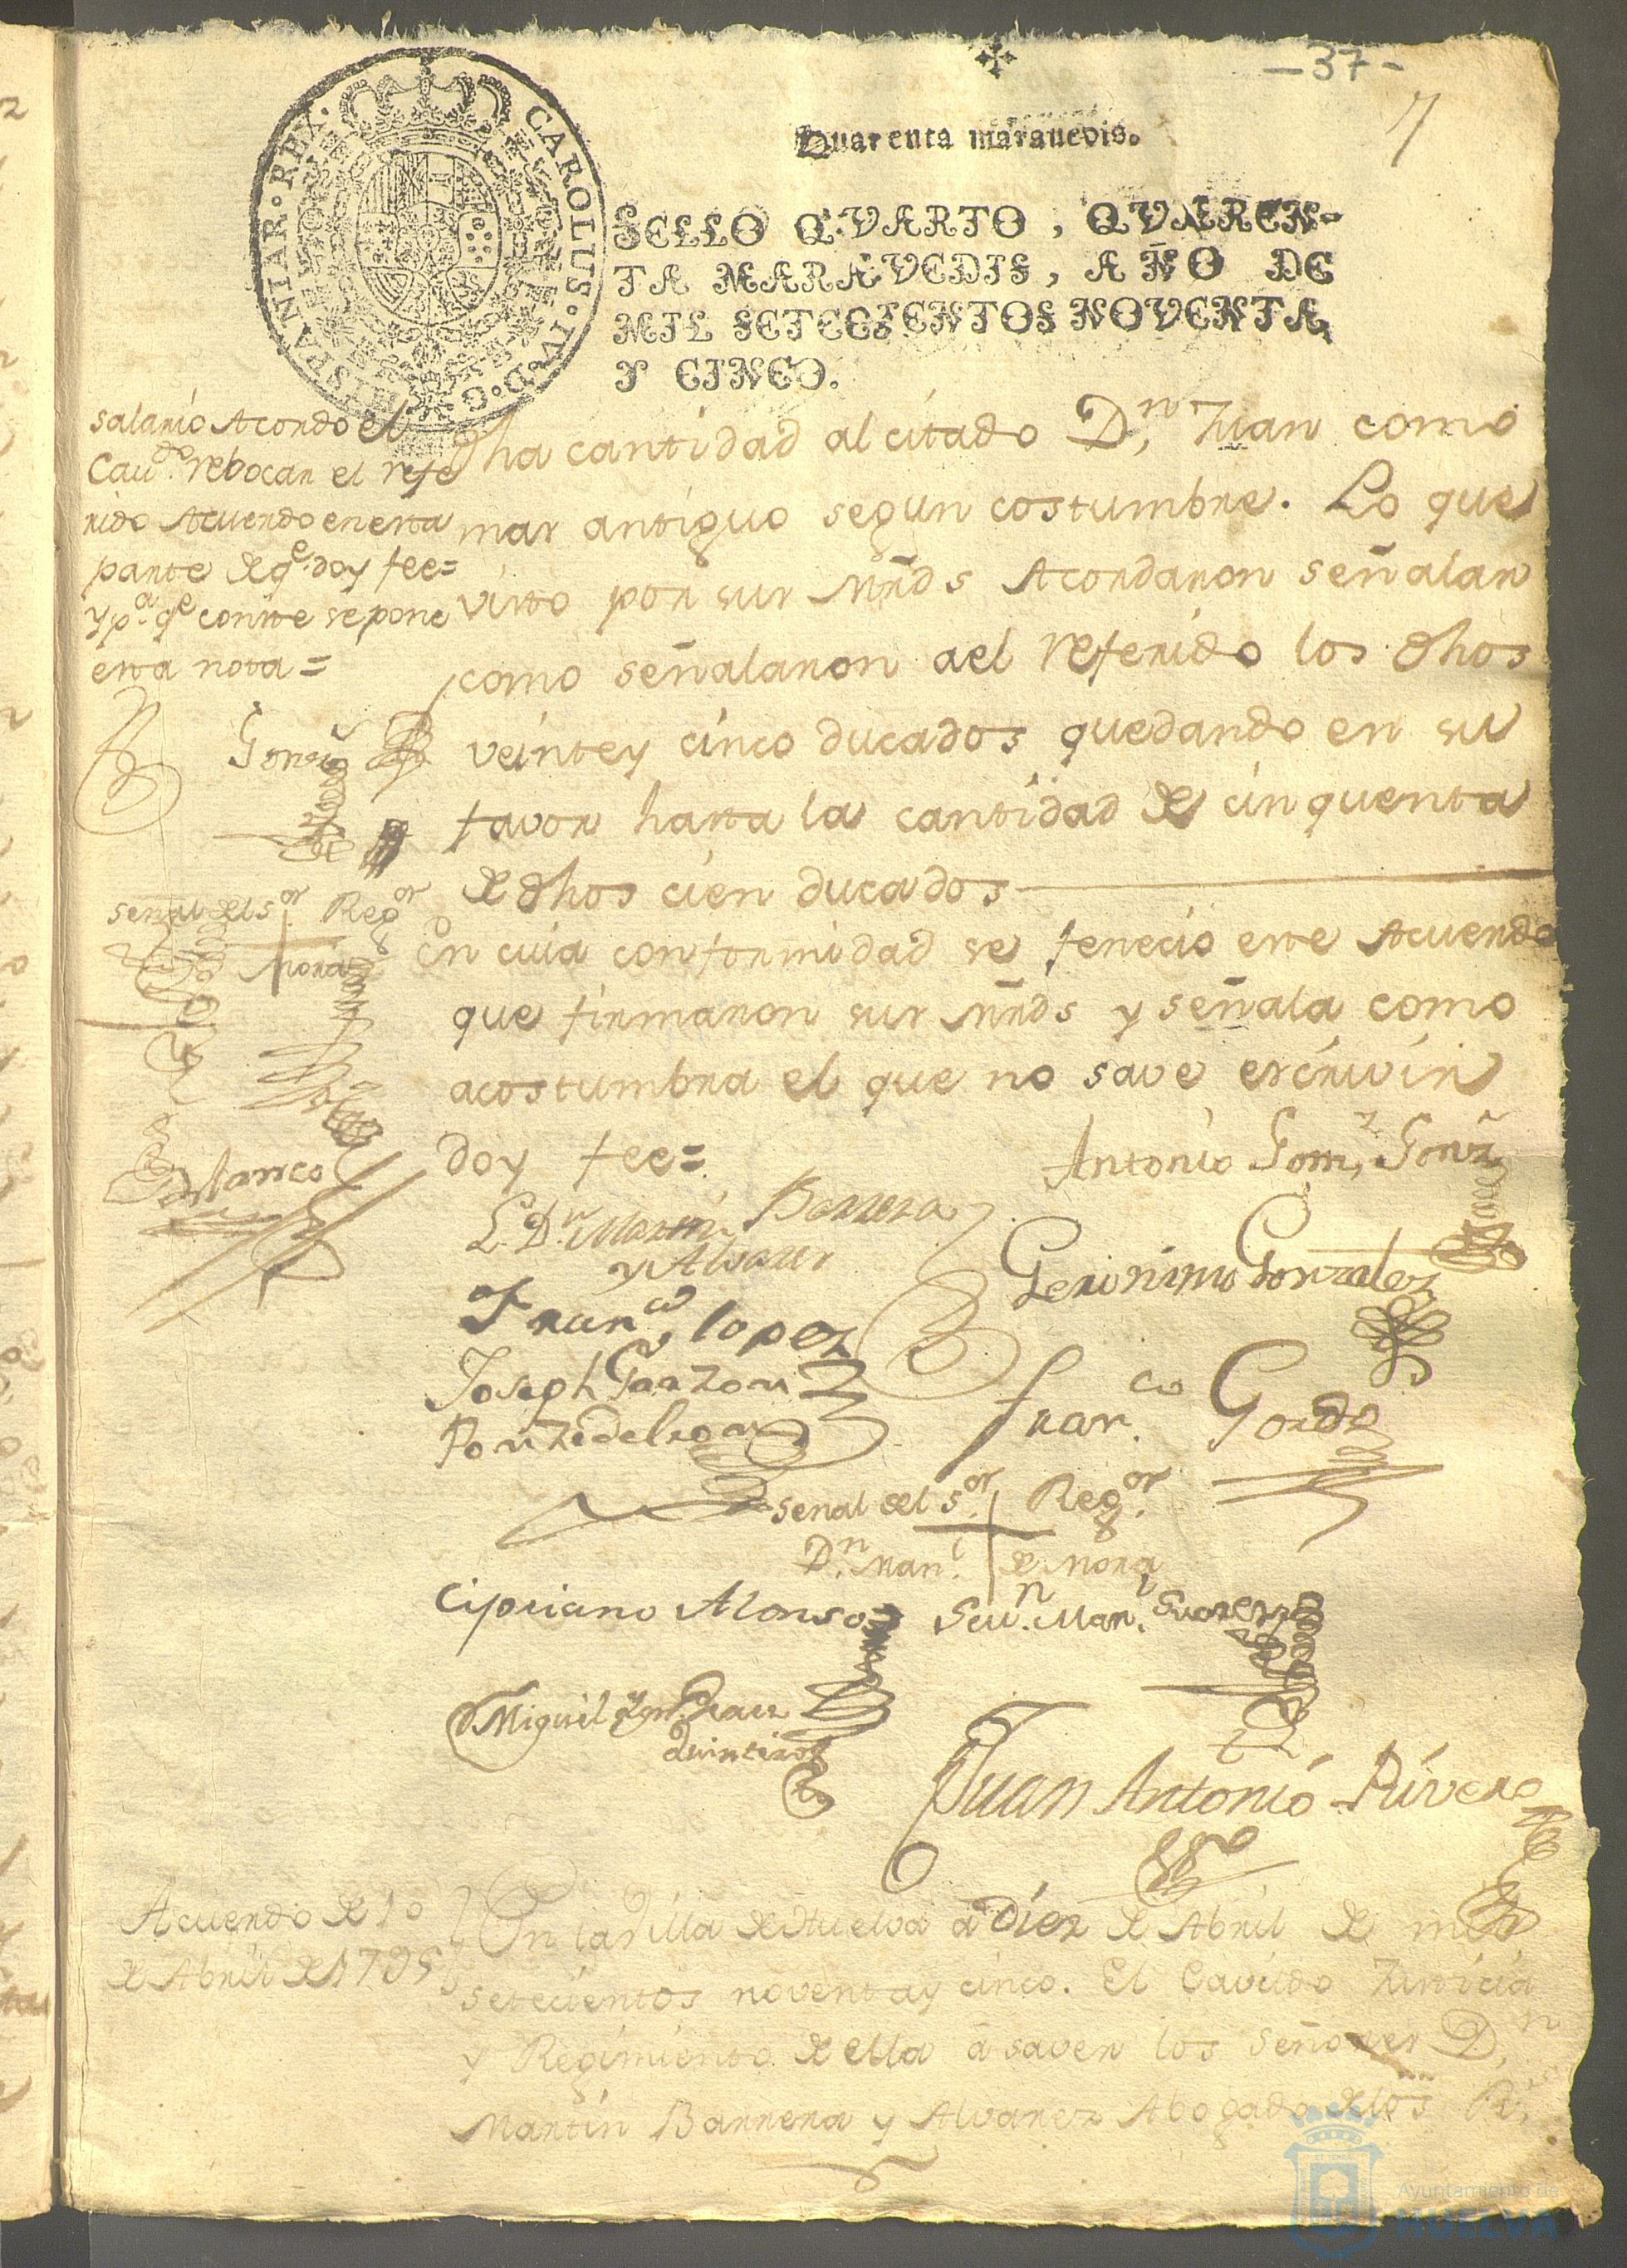 -37-
Quarenta maravedis.
CAROLUS·IV·D·G·HISPANIAR·REX·
SELLO QVARTO, QVAREN-
TA MARAVEDIS, AÑO DE
MIL SETECIENTOS NOVENTA
Y CINCO.
salario Acordo el
Cavdo. rebocar el refe
rido Acuerdo en esta
parte de qe. doy fee=
y pa. qe conste se pone
esta nota=
Gonz
señal del sor. Regor.
Mora
Blanco
dha cantidad al citado Dn. Juan como
mas antiguo segun costumbre. Lo que
visto por sus Mrds Acordaron señalar
como señalaron a el referido los dhos
veinte y cinco ducados quedando en su
favor hasta la cantidad de cinquenta
de dhos cien ducados
En cuia conformidad se fenecio este Acuerdo
que firmaron sus Mrds y señala como
acostumbra el que no save escrivir
doy fee=
Antonio Gomz. Gonz
L. Dn. Martin Barrera
y Alvarez
Geronimo Gonzalez
Franco. lopez
Joseph Garzon
Ponze de leon
Franco. Gordo
señal del sor. Regor.
Dn. Manl. de Mora
Cipriano Alonso
Sevn. Manl. Suarez
Miguel
Quintero
Juan Antonio Rivera
Acuerdo de 10
de Abril de 1795
En la Villa de Huelva a Diez de Abril de mil
setecientos noventa y cinco. El Cavildo Justicia
y Regimiento de ella á saver los señores Dn.
Martin Barrera y Alvarez Abogado de los Rs.
Ayuntamiento de
HUELVA